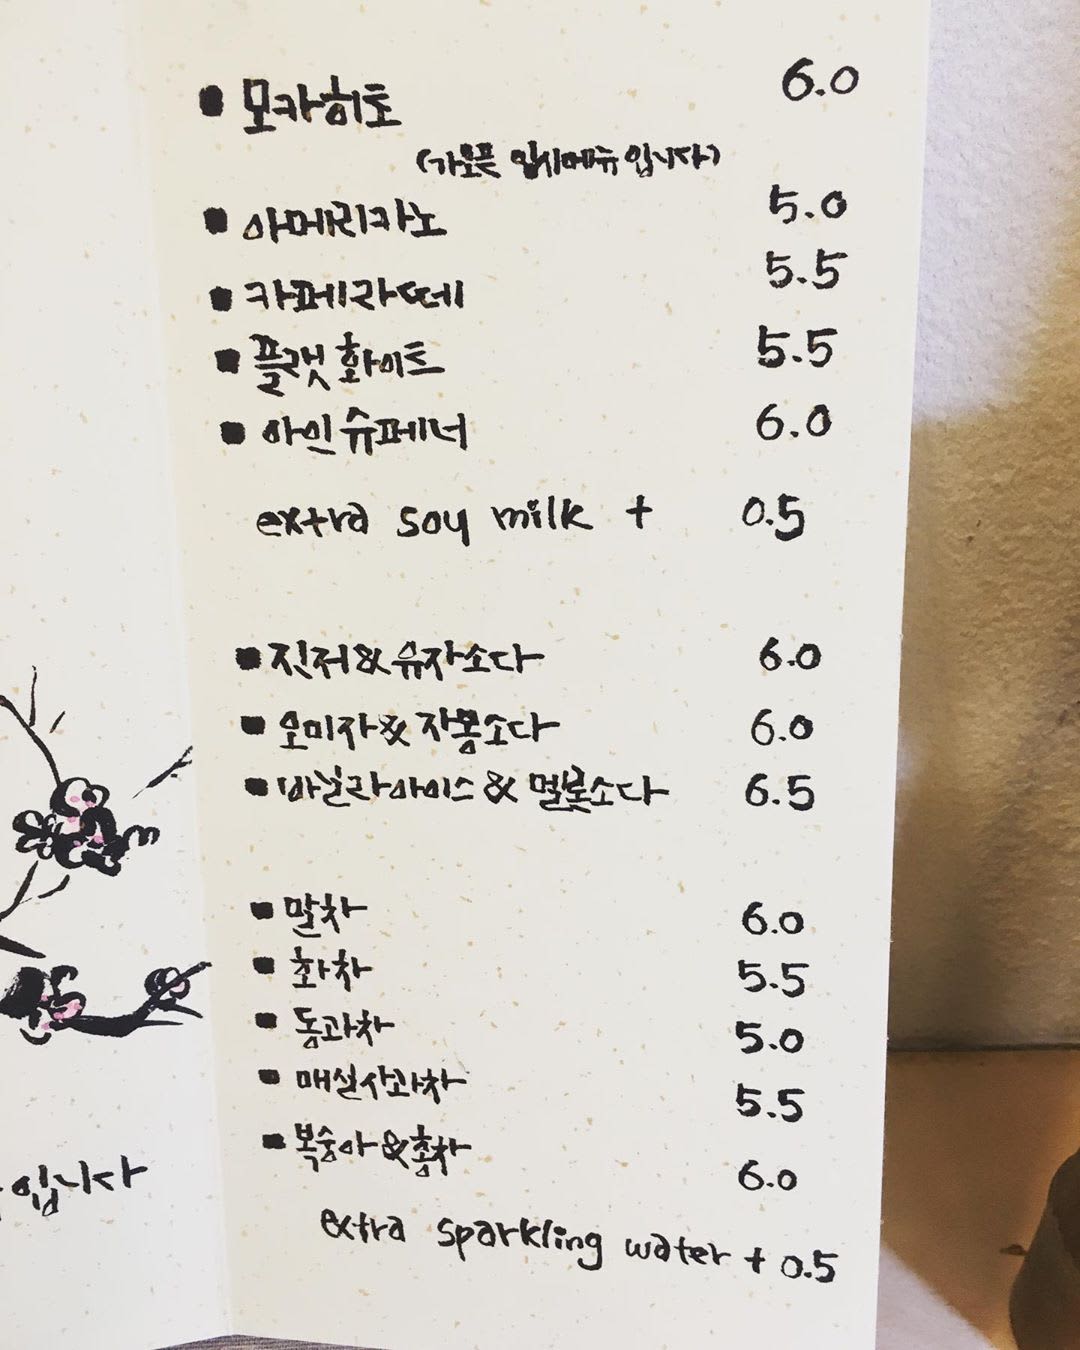 모카히초 6.0
(가오픈 임시메뉴입니다)
아메리카노 5.0
카페라떼 5.5
플랫화이트 5.5
아인슈페너 6.0
extra soy milk + 0.5
진저&유자소다 6.0
오미자&자몽소다 6.0
바닐라아이스&멜롯소다 6.5
말차 6.0
화차 5.5
동과차 5.0
매실사과차 5.5
복숭아&홍차 6.0
extra sparkling water + 0.5
입니다